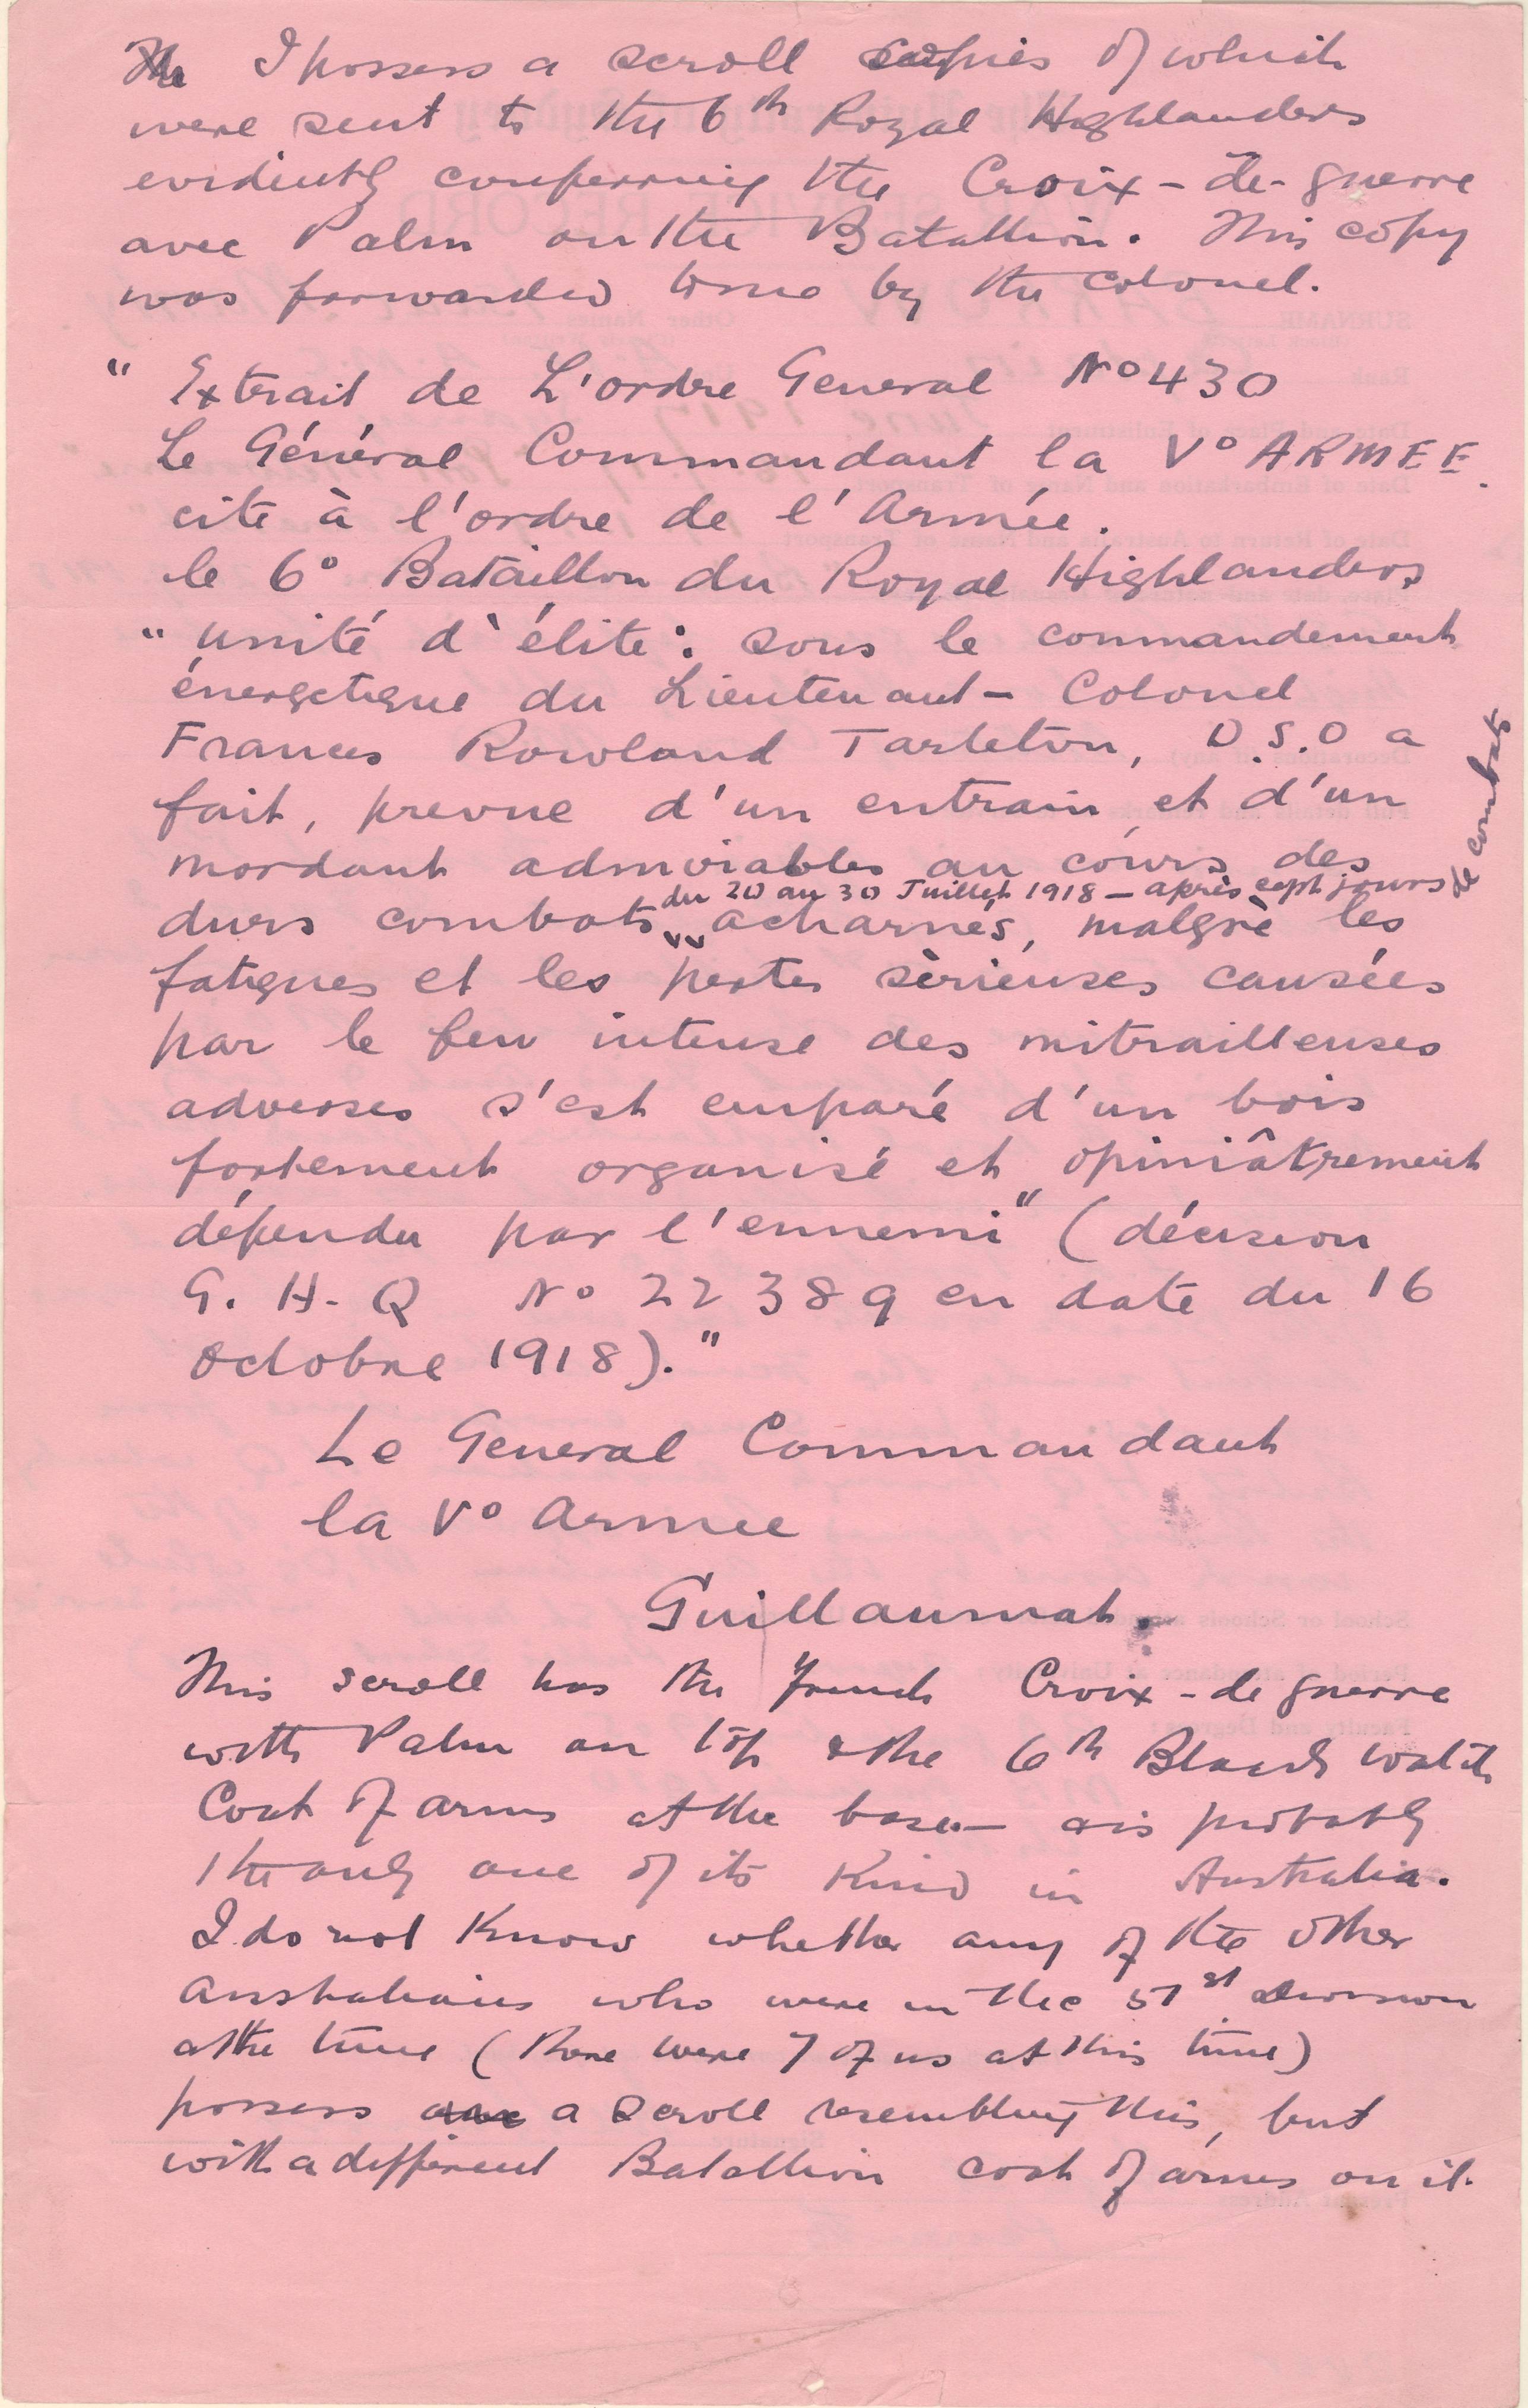 The I possess a scroll copies of which
were sent to the 6th Royal Highlanders
evidently conferring the Croix-de-guerre
avec Palm on the Batallion. This copy
was forwarded to me by the Colonel.
" Extrait de L'ordre General No 430
Le Général Commandant la V° ARMEE.
cite à l'ordre de l'Armée.
le 6° Bataillon du Royal Highlanders
" unité d'élite: sous le commandement
énergetique du Lieutenant-Colonel
Frances Rowland Tarleton, D.S.O a
fait, prevue d'un entrain, et d'un
mordant admirables au cours des
du 20 au 30 Juillet 1918 - après sept jours de combats
durs combats acharnés, malgrè les
fatigues et les pertes sèrieuses causées
par le feu intense des mitrailleuses
adverses s'est emparé d'un bois
fortement organisé et opiniâtrement
défendu par l'ennemi" (décision
G. H-Q No 22389 en date du 16
Octobre 1918)."
Le General Commandant
la V° Armee
Guillaumat.
This scroll has the French Croix-de guerre
with Palm on top & the 6th Black Watch
Coat of arms at the base — & is probably
the only one of its kind in Australia.
I do not know whether any of the other
Australians who were in the 51st Division
at the time (there were 7 of us at this time)
possess a scroll resembling this, but
with a different Batallion coat of arms on it.